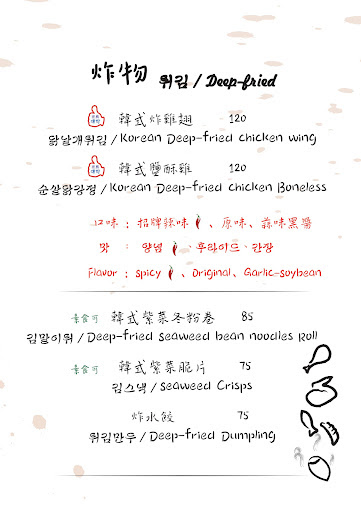 炸物 튀김 / Deep-fried
韓式炸雞翅 120
닭날개튀김 / Korean Deep-fried chicken wing
韓式鹽酥雞 120
순살닭강정 / Korean Deep-fried chicken Boneless
口味 : 招牌辣味 、原味、蒜味黑醬
맛 : 양념 · 후라이드 · 간장
Flavor : spicy 、Original、Garlic-soybean
素食可 韓式紫菜冬粉卷 85
김말이튀 / Deep-fried seaweed bean noodles Roll
素食可 韓式紫菜脆片 75
김스낵 / Seaweed Crisps
炸水餃 75
튀김만두 / Deep-fried Dumpling